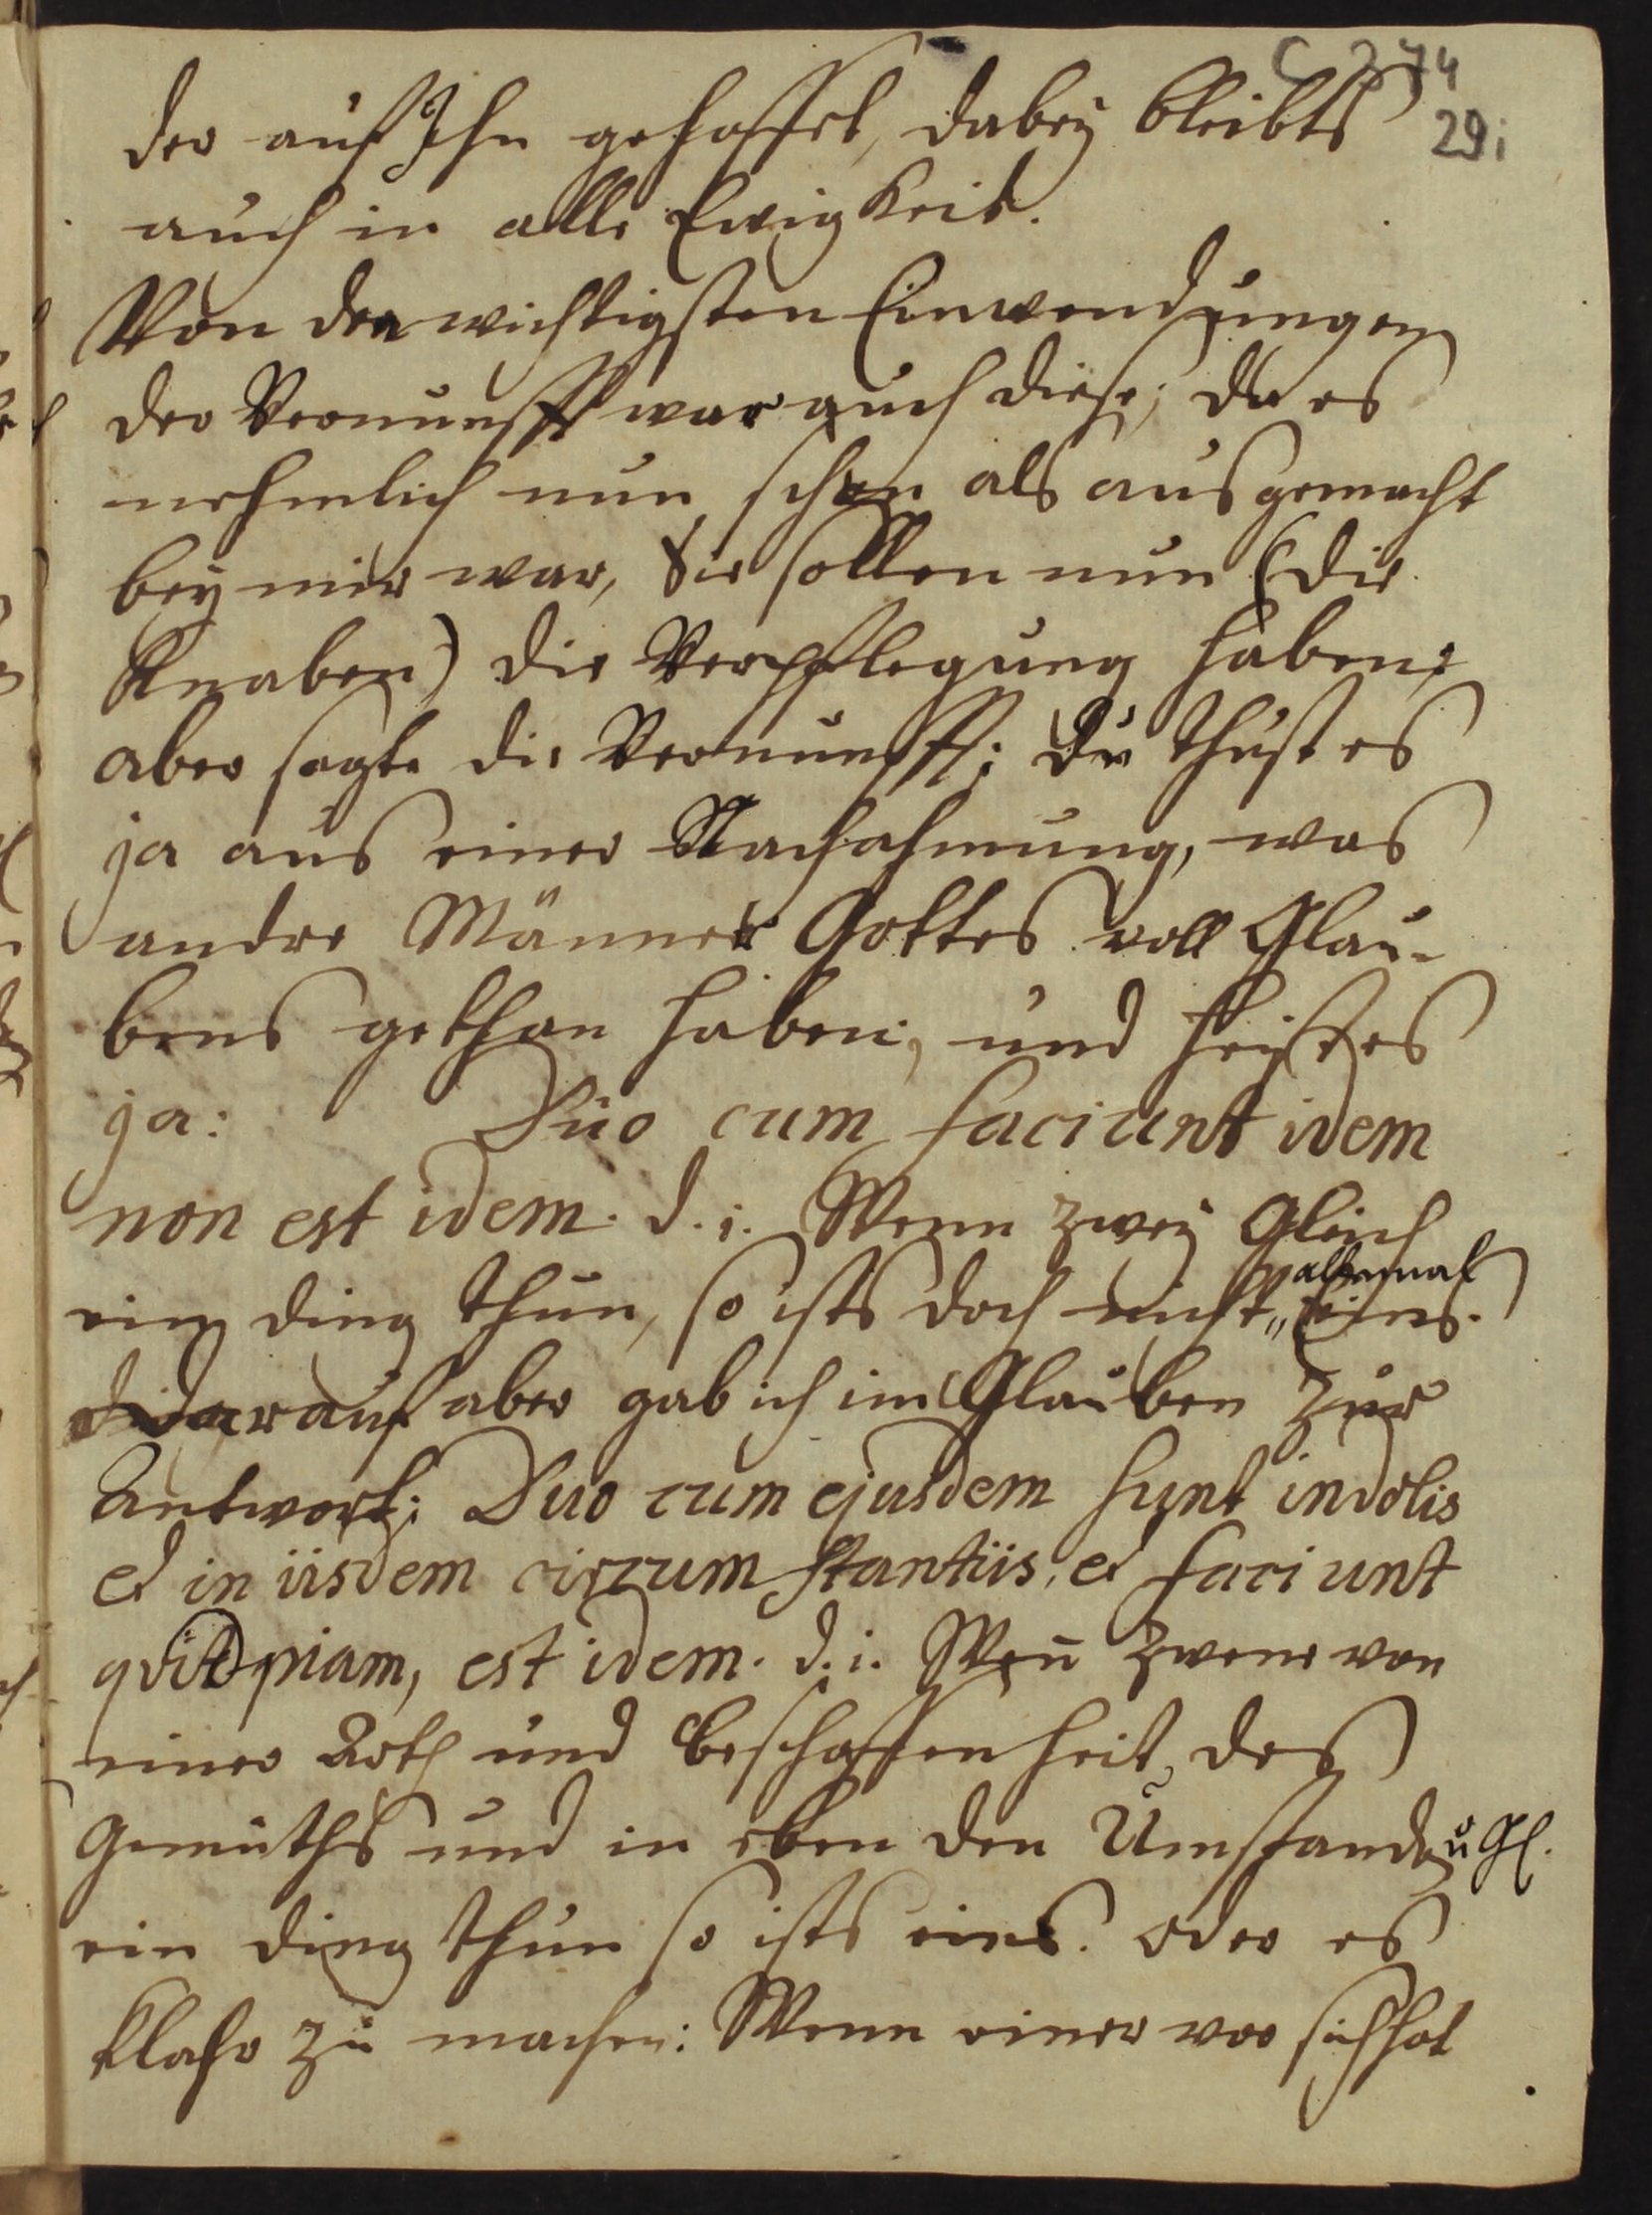 C 374
29i
der auf Ihn gehoffet, dabey bleibts
auch in alle Ewigkeit.
Von den wichtigsten Einwendungen
der Vernunfft war auch diese; da es
nehmlich nun schon als ausgemacht
bey mir war, Sie sollen nun (die
Knaben) die Verpflegung haben;
aber sagte die Vernunfft: Du thust es
ja aus einer Nachahmung, was
andre Männer Gottes voll Glau-
bens gethan haben, und heist es
ja: Duo cum faciunt idem
non est idem. d. i. Wenn zwey Gleich
ein ding thun, so ists doch nicht allemal Eines.
Darauf aber gab ich im Glauben zur
Antwort: Duo cum ejusdem sunt indolis
et in iisdem circumstantiis, et faciunt
quidpiam, est idem. d. i. Weñ zwene von
einer Arth und beschaffenheit des
Gemüths und in eben den Umstanden u Gl.
ein ding thun so ists eins. oder es
klahr zu machen: Wenn einer vor sich hat